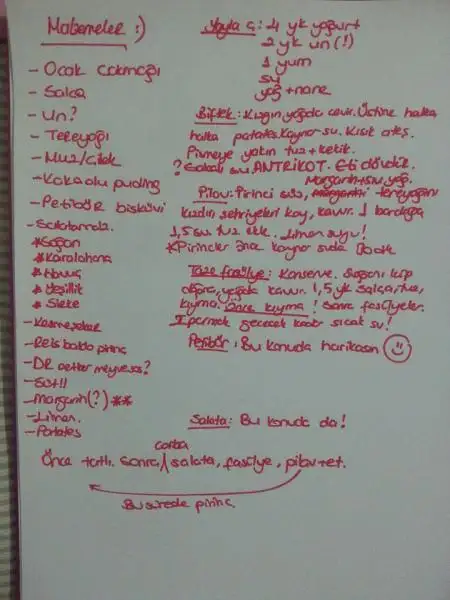 Malzemeler :)
- Ocak çakmağı
- Salça
- Un?
- Tereyağı
- Muz/Çilek
- Kakaolu puding
- Petibör bisküvi
- Salatamalz.
* Soğan
* Karalahana
* Havuç
* Yeşillik
* Sirke
- Kesmeşeker
- Reis baldo pirinç
- DR oetker meyvesos?
- Süt!!
- Margarin(?) **
- Limon.
- Patates
Yayla ç: 4 yk yoğurt
2 yk un(!)
1 yum
su
yağ + nane
Biftek: Kızgın yağda çevir. Üstüne halka
halka patates. Kaynar su. Kısık ateş.
Pişmeye yakın tuz + kekik.
? Salçalı su. ANTRİKOT. Eti dövdür.
Margarin + sıvı yağ.
Pilav: Pirinci süz, margarini tereyağını
kızdır şehriyeleri koy, kavur. 1 bardağa
1,5 su. tuz ekle. Limon suyu!
* Pirinçler önce kaynar suda 15 dk
Taze fasülye: Konserve. Soğanı küp
doğra, yağda kavur. 1,5 yk salça, tuz,
kıyma. Önce kıyma! Sonra fasülyeler.
1 parmak geçecek kadar sıcak su!
Petibör: Bu konuda harikasın
Salata: Bu konuda da!
çorba
Önce tatlı. Sonra, salata, fasülye, pilav + et.
Bu sürede pirinç.